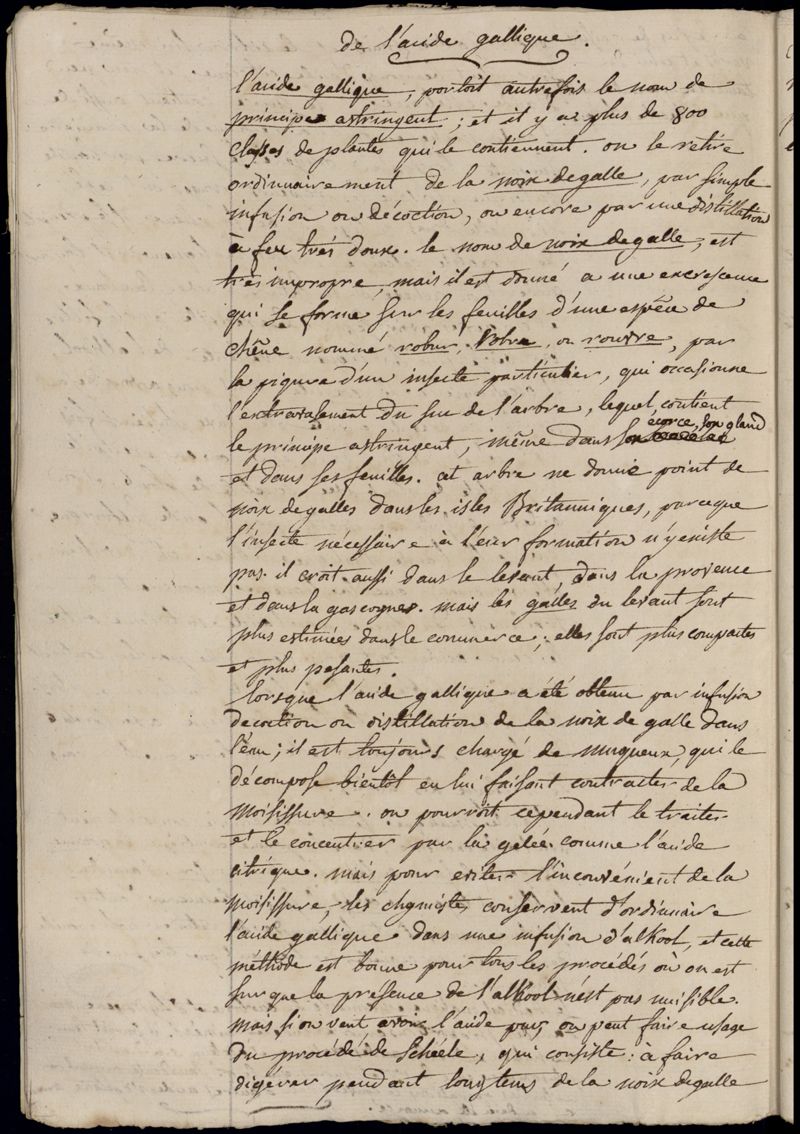 de l'acide gallique.
l'acide gallique, portoit autrefois le nom de
principe astringent; et il y a plus de 800
classes de plantes qui le contiennent. on le retire
ordinnairement de la noix de galle, par simple
infusion ou décoction, ou encore par une distillation
à feu trés doux. le nom de noix de galle, est
trés impropre, mais il est donné a une excressence
qui se forme sur les feuilles d'une espêce de
chêne nommé robur, Robre, ou rouvre, par
la piqure d'un insecte particulier, qui occasionne
l'extravasement du suc de l'arbre, lequel contient
le principe astringent, même dans son écorce, son gland
et dans ses feuilles. cet arbre ne donne point de
noix de galles dans les isles Britanniques, parceque
l'insecte nécessaire à leur formation n'y existe
pas. il croit aussi dans le levant, dans la provence
et dans la gascogne. mais les galles du levant sont
plus estimées dans le commerce; elles sont plus compactes
et plus pesantes.
lorsque l'acide gallique a été obtenu par infusion
decoction ou distillation de la noix de galle dans
l'eau; il est toujours chargé de muqueux, qui le
décompose bientôt en lui faisant contracter de la
moisissure. on pourroit cependant le traiter
et le concentrer par la gelée comme l'acide
citrique. mais pour eviter l'inconvénient de la
moisissure, les chymistes conservent d'ordinaire
l'acide gallique dans une infusion d'alkool, et cette
méthode est bonne pour tous les procédés où on est
sur que la présence de l'alkool n'est pas nuisible.
mais si on veut avoir l'acide pur, on peut faire usage
du procédé de Schéele, qui consiste: à faire
digérer pendant longtems de la noix de galle